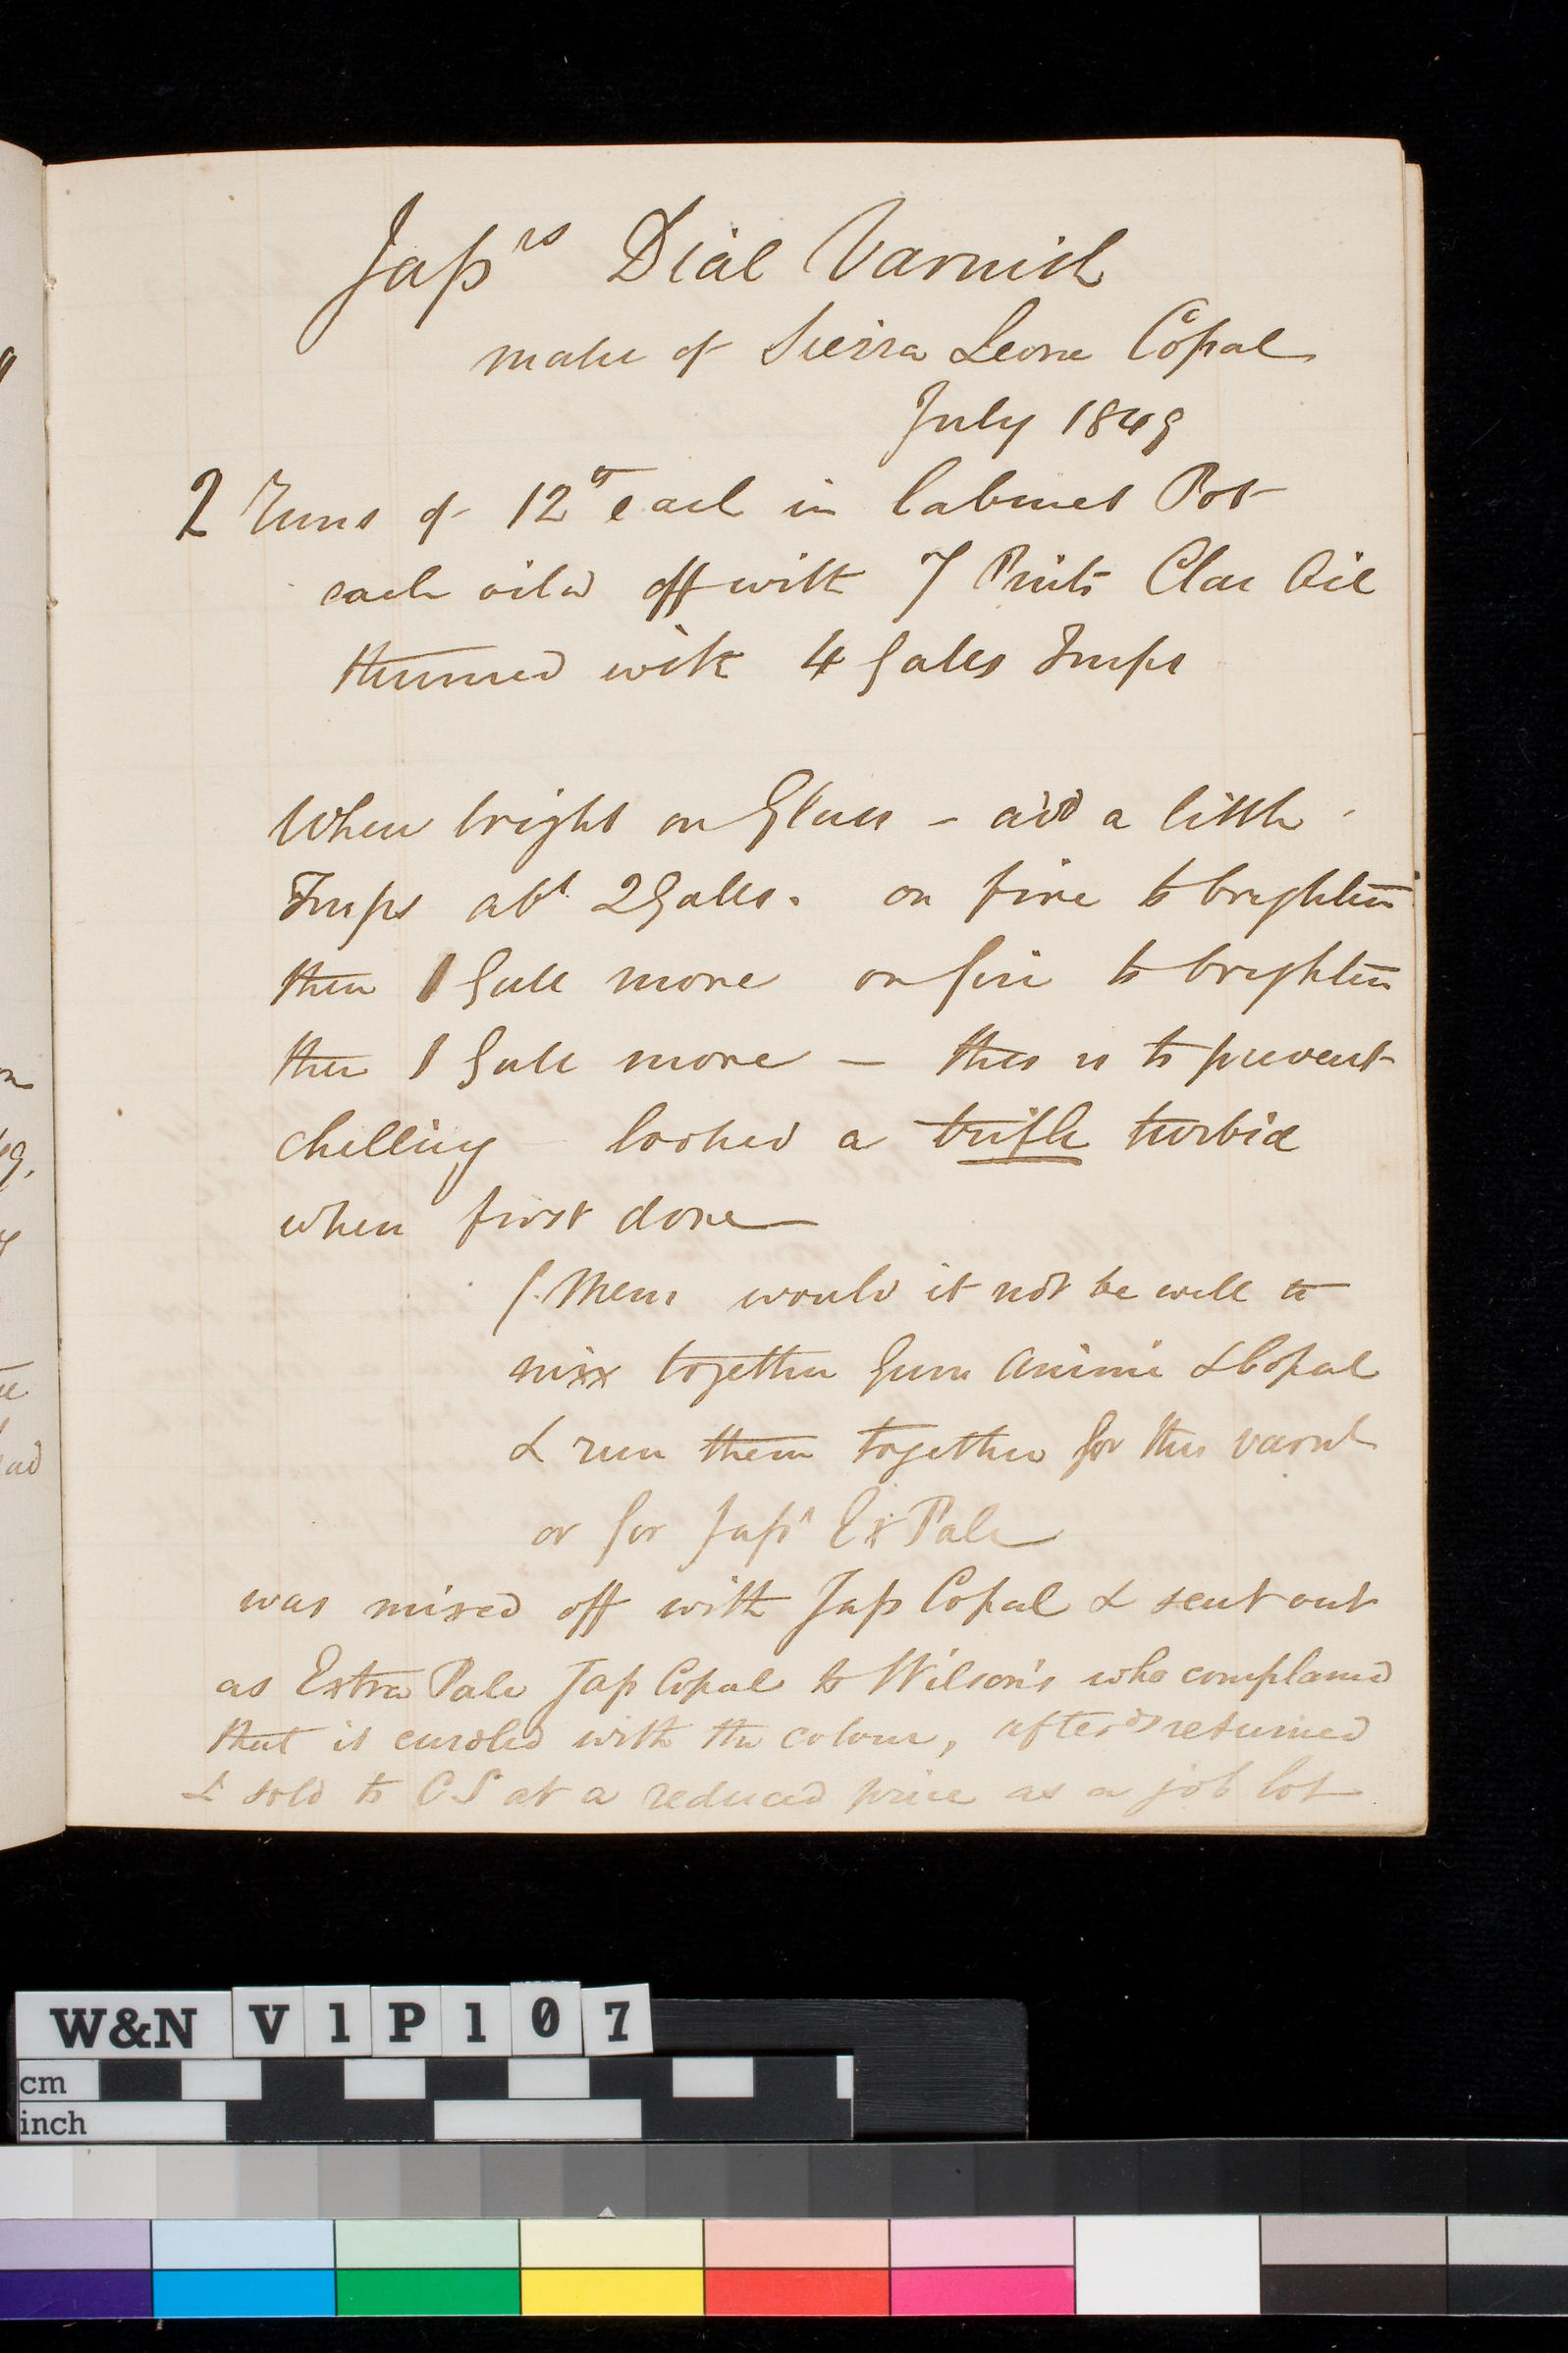 Jap^rs Dial Varnish
made of Sierra Leone Copal
July 1849
2 Runs of 12^lb each in Cabinet Pot
each oild off with 7 Pints Clar Oil
thinned with 4 Galls Turps
When bright on Glass - add a little
Turps ab^t 2 Galls. on fire to brighten
then 1 Gall more on fire to brighten
then 1 Gall more — this is to prevent
chilling looked a trifle turbid
when first done
Mem would it not be well to
mix together Gum Animi & Copal
& run them together for this varnh
or for Jap^s Ex Pale
was mixed off with Jap Copal & sent out
as Extra Pale Jap Copal to Wilson's who complained
that it curdled with the colour, after^ds returned
& sold to CS at a reduced price as a job lot
W&N V1P107
cm
inch